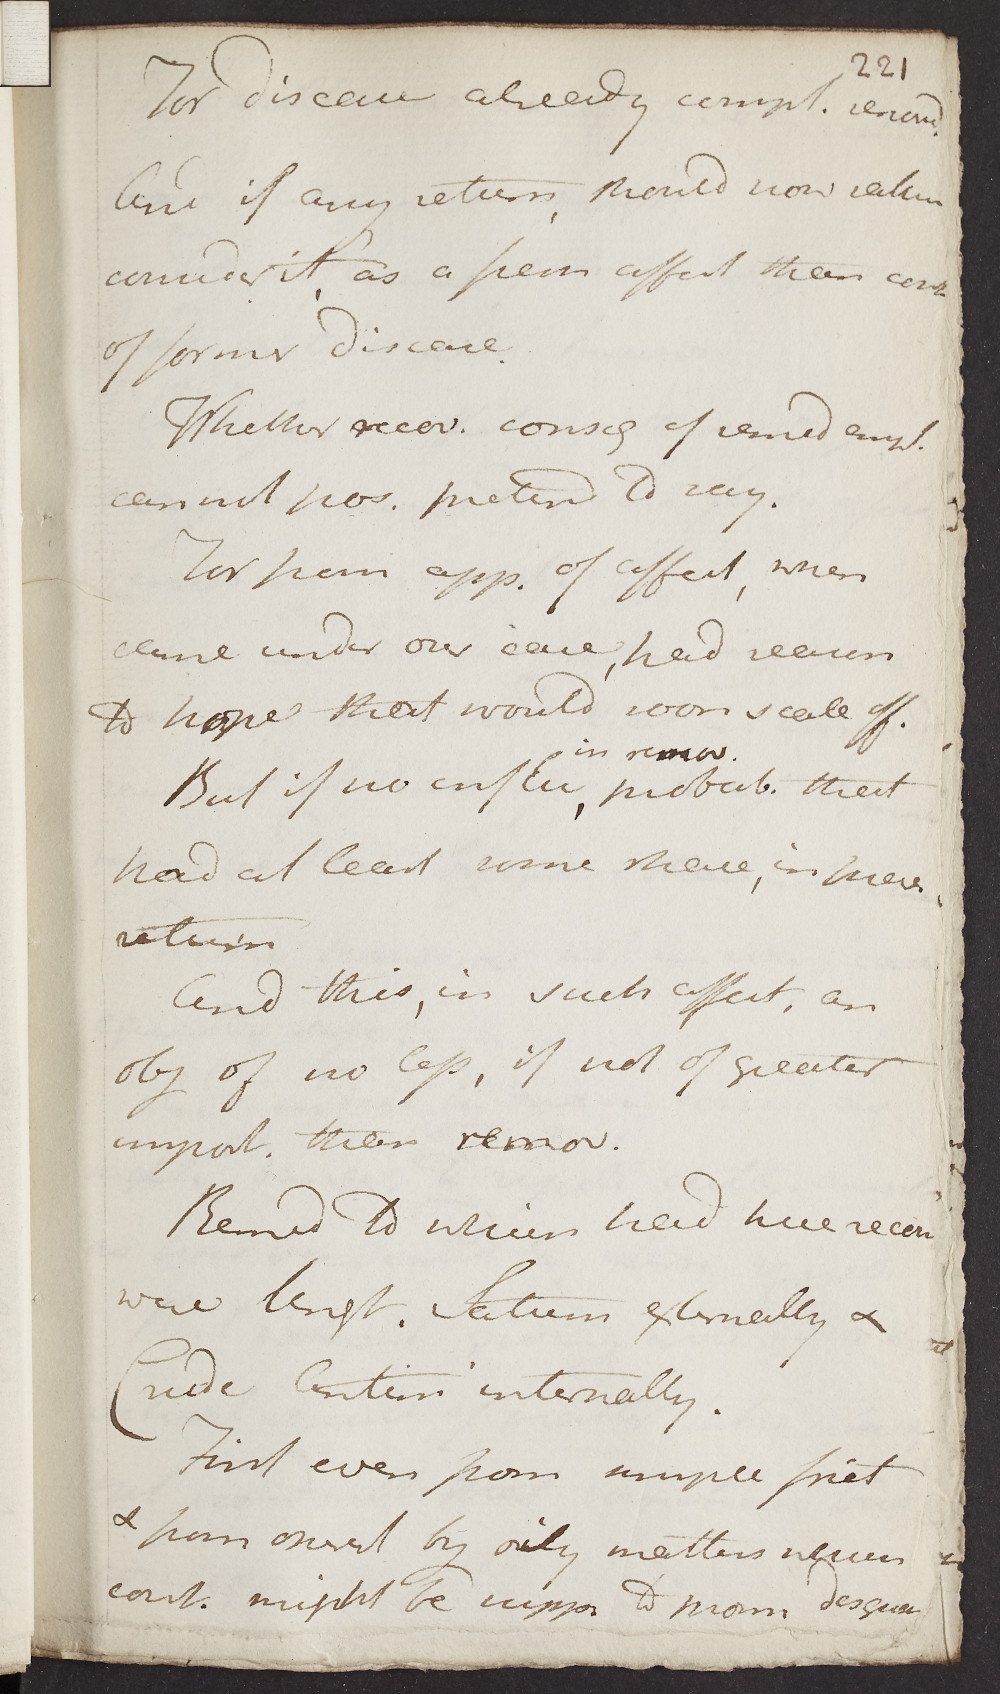 221
For disease already compl. remov.
And if any return, should now rather
consider it, as a fresh affect than cont
of former disease.
Whether recov. conseq of remed empl.
cannot pos. pretend to say.
For from app. of affect, when
came under our care, had reason
to hope that would soon scale off.
in remov.
But if no influ, probab. that
had at least some share, in prev.
return
And this, in such affect. an
obj of no less, if not of greater
import. than remov.
Remed to which had here recour
were Ungt. Saturn externally &
Crude Antim internally.
First even from simple frict
& from exercd by oily matters which
cont. might be suppos to prom desqua